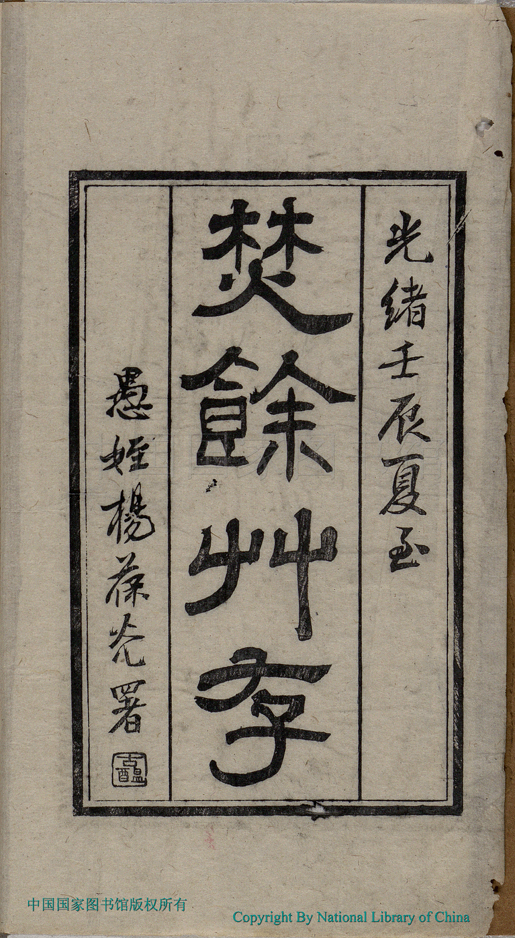 光緒壬辰夏至
焚餘艸存
愚姪楊葆光署
古醞
中国国家图书馆版权所有
Copyright By National Library of China